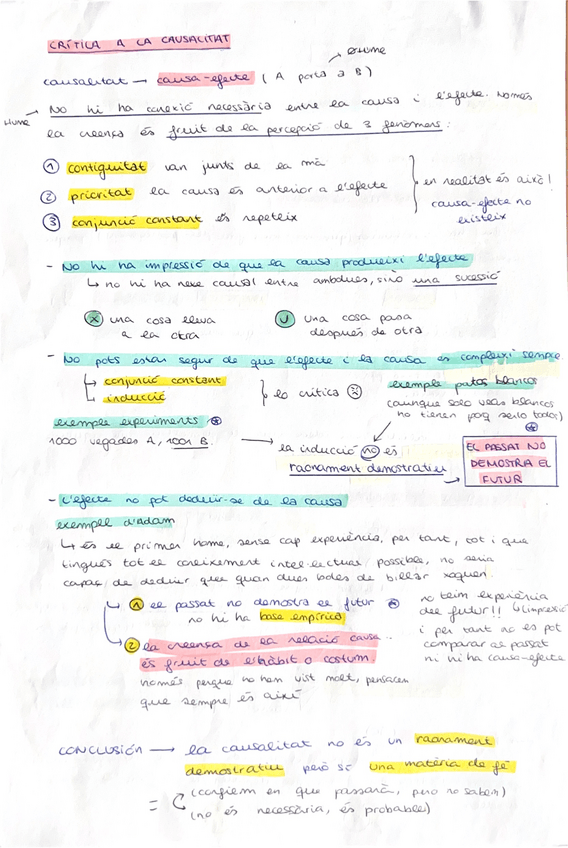 CRÍTICA A LA CAUSALITAT
causalitat → causa-efecte (A porta a B)
Hume
No hi ha conexió necessària entre la causa i l'efecte. Només
la creença és fruit de la percepció de 3 fenòmens:
① contiguitat van junts de la mà
② prioritat la causa és anterior a l'efecte
③ conjunció constant es repeteix
en realitat és això!
causa-efecte no
existeix
- No hi ha impressió de que la causa produeixi l'efecte
↳ no hi ha nexe causal entre ambdues, sinó una sucessió
una cosa lleva
a la otra
una cosa pasa
después de otra
- No pots estar segur de que l'efecte i la causa es compleixi sempre
→ conjunció constant
→ inducció
lo critica
exemple patos blancos
(aunque solo veas blancos
no tienen porq serlo todos)
exemple experiments
1000 vegades A, 1001 B.
→ la inducció no és
raonament demostratiu
EL PASSAT NO
DEMOSTRA EL
FUTUR
- L'efecte no pot deduir-se de la causa
exemple d'Adam
↳ és el primer home, sense cap experiència, per tant, tot i que
tingués tot el coneixement intel·lectual possible, no seria
capaç de deduir que quan dues boles de billar xoquen.
① el passat no demostra el futur
no hi ha base empírica
② la creença de la relació causa..
és fruit de l'hàbit o costum.
només perque ho hem vist molt, pensacem
que sempre és així
no teim experiència
del futur!! ↳(impressió
i per tant no es pot
comparar al passat
ni hi ha causa-efecte
CONCLUSIÓN → la causalitat no és un raonament
demostratiu però si una matèria de fé
= (confiem en que passarà, pero no sabem)
(no és necessària, és probable)